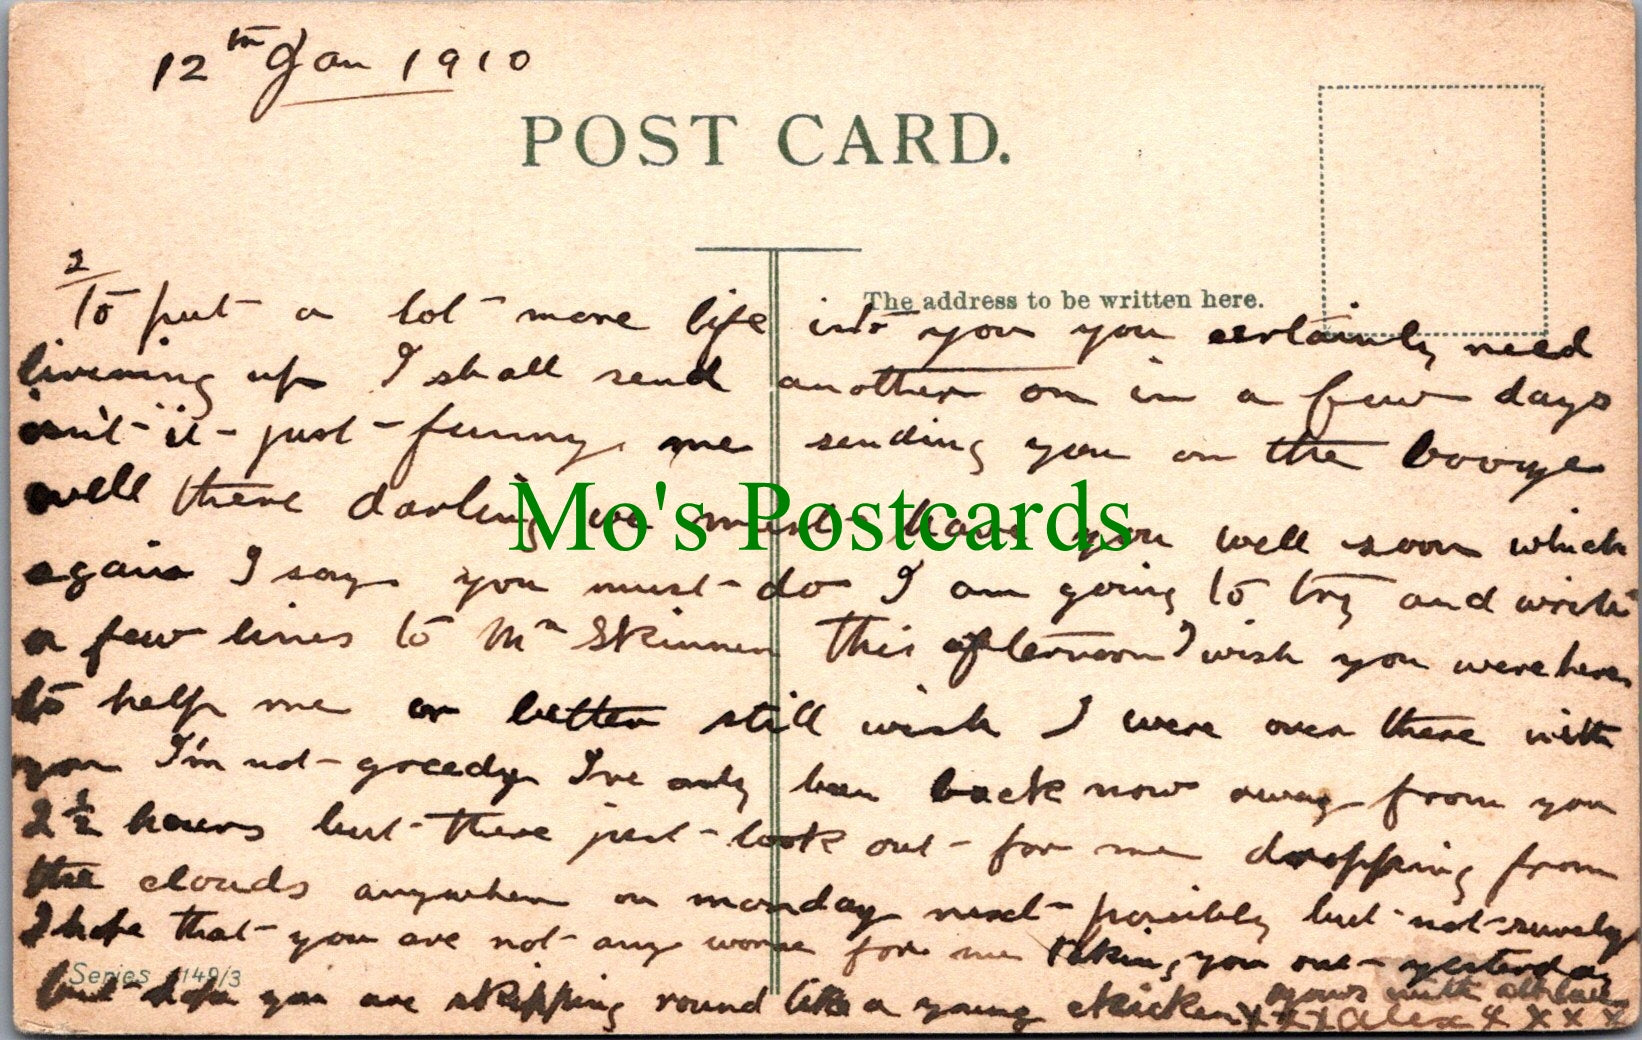 12th Jan 1910
POST CARD.
The address to be written here.
2
To put a lot more life into you you certainly need
livening up I shall send another on in a few days
isn't it just funny me sending you on the booze
well there darling we must have you well soon which
again I say you must do I am going to try and write
a few lines to Mr Skinner this afternoon I wish you were here
to help me or better still wish I were over there with
you I'm not greedy I've only been back now away from you
2½ hours but there just look out for me dropping from
the clouds anywhere on monday next possibly but not surely
I hope that you are not any worse for me taking you out yesterday
but hope you are skipping round like a young chicken
yours with all love
x x x Alex x x x x
Series 1149/3
Mo's Postcards